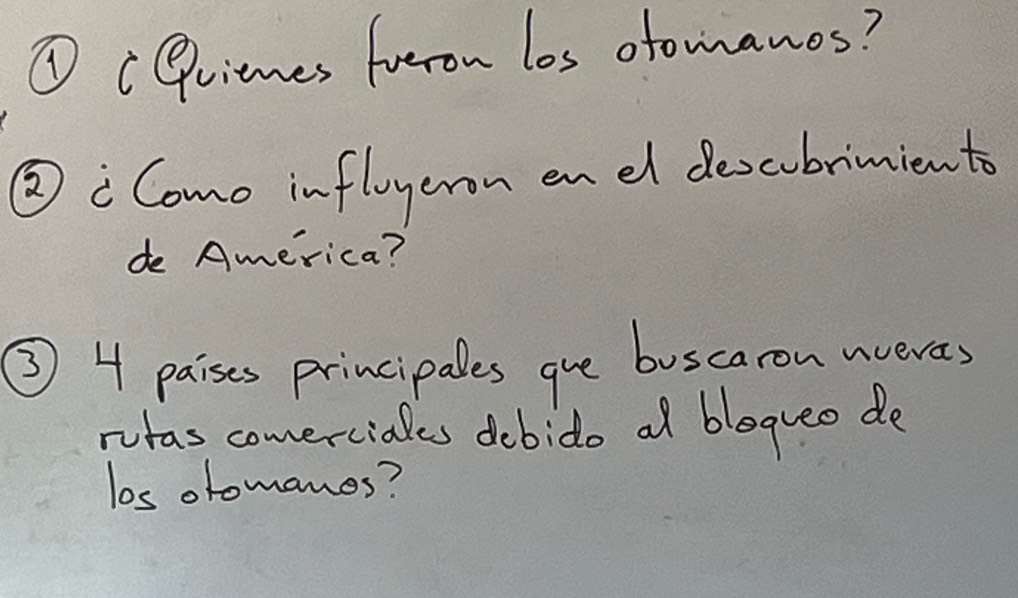 ① ¿Quienes fueron los otomanos?
② ¿Como influyeron en el descubrimiento
de América?
③ 4 países principales que buscaron nuevas
rutas comerciales debido al bloqueo de
los otomanos?